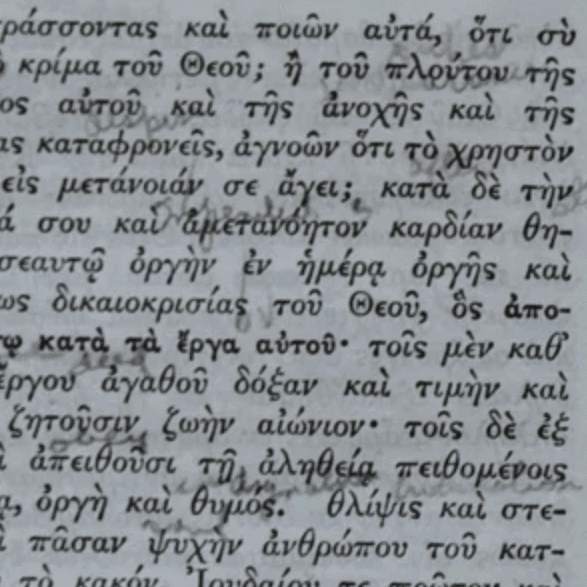 ράσσοντας καὶ ποιῶν αὐτά, ὅτι σὺ
κρίμα τοῦ Θεοῦ; ἢ τοῦ πλούτου τῆς
ος αὐτοῦ καὶ τῆς ἀνοχῆς καὶ τῆς
ας καταφρονεῖς, ἀγνοῶν ὅτι τὸ χρηστὸν
εἰς μετάνοιάν σε ἄγει; κατὰ δὲ τὴν
ά σου καὶ ἀμετανόητον καρδίαν θη-
σεαυτῷ ὀργὴν ἐν ἡμέρᾳ ὀργῆς καὶ
ως δικαιοκρισίας τοῦ Θεοῦ, ὃς ἀπο-
ῳ κατὰ τὰ ἔργα αὐτοῦ· τοῖς μὲν καθ’
ἔργου ἀγαθοῦ δόξαν καὶ τιμὴν καὶ
ζητοῦσιν ζωὴν αἰώνιον· τοῖς δὲ ἐξ
ὶ ἀπειθοῦσι τῇ ἀληθείᾳ πειθομένοις
α, ὀργὴ καὶ θυμός. θλίψις καὶ στε-
ὶ πᾶσαν ψυχὴν ἀνθρώπου τοῦ κατ-
τὸ κακόν, Ἰουδαίου τε πρῶτον καὶ